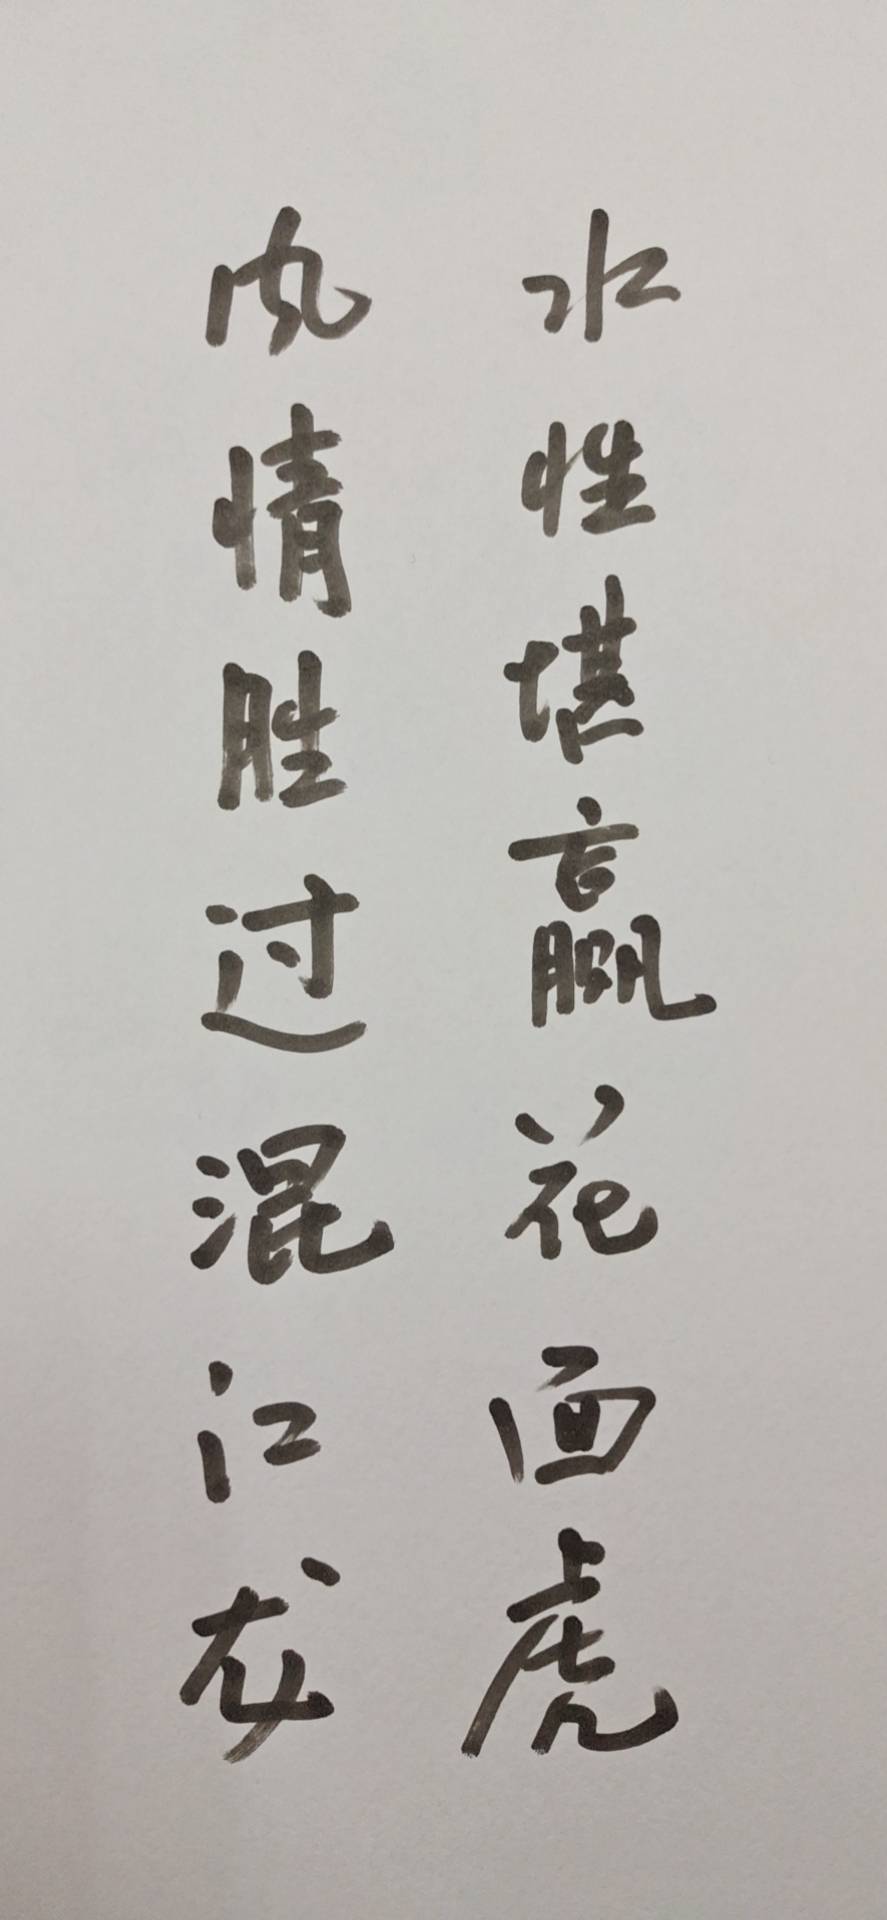 水性堪赢花面虎
风情胜过混江龙